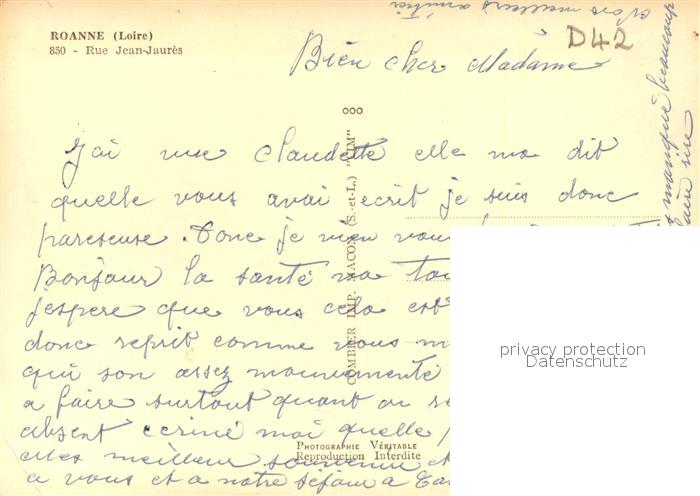 ROANNE (Loire)
850 - Rue Jean-Jaurès
D42
Bien cher Madame
J'ai vue Claudette elle ma dit
quelle vous avai ecrit je suis donc
pareseuse. Donc je vien vous
Bonjour la santé va
j'espere que vous cela est
donc reprit comme vous
qui son assez mouvementé
a faire surtout quant on
absent ecrivé moi quelle
mes meilleur souvenir et
a vous et a notre séjour a
manque beaucoup
faire rire
meilleurs amitiés
COMBIER IMP. MACON (S.-et-L.) "CIM"
PHOTOGRAPHIE VÉRITABLE
Reproduction Interdite
privacy protection
Datenschutz